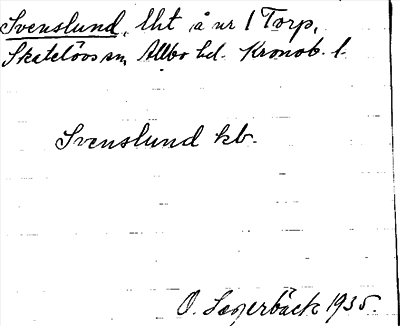 Svenslund, lht å nr 1 Torp,
Skatelövs sn, Allbo hd. Kronob. l.
Svenslund kb.
O. Lagerbäck 1935.